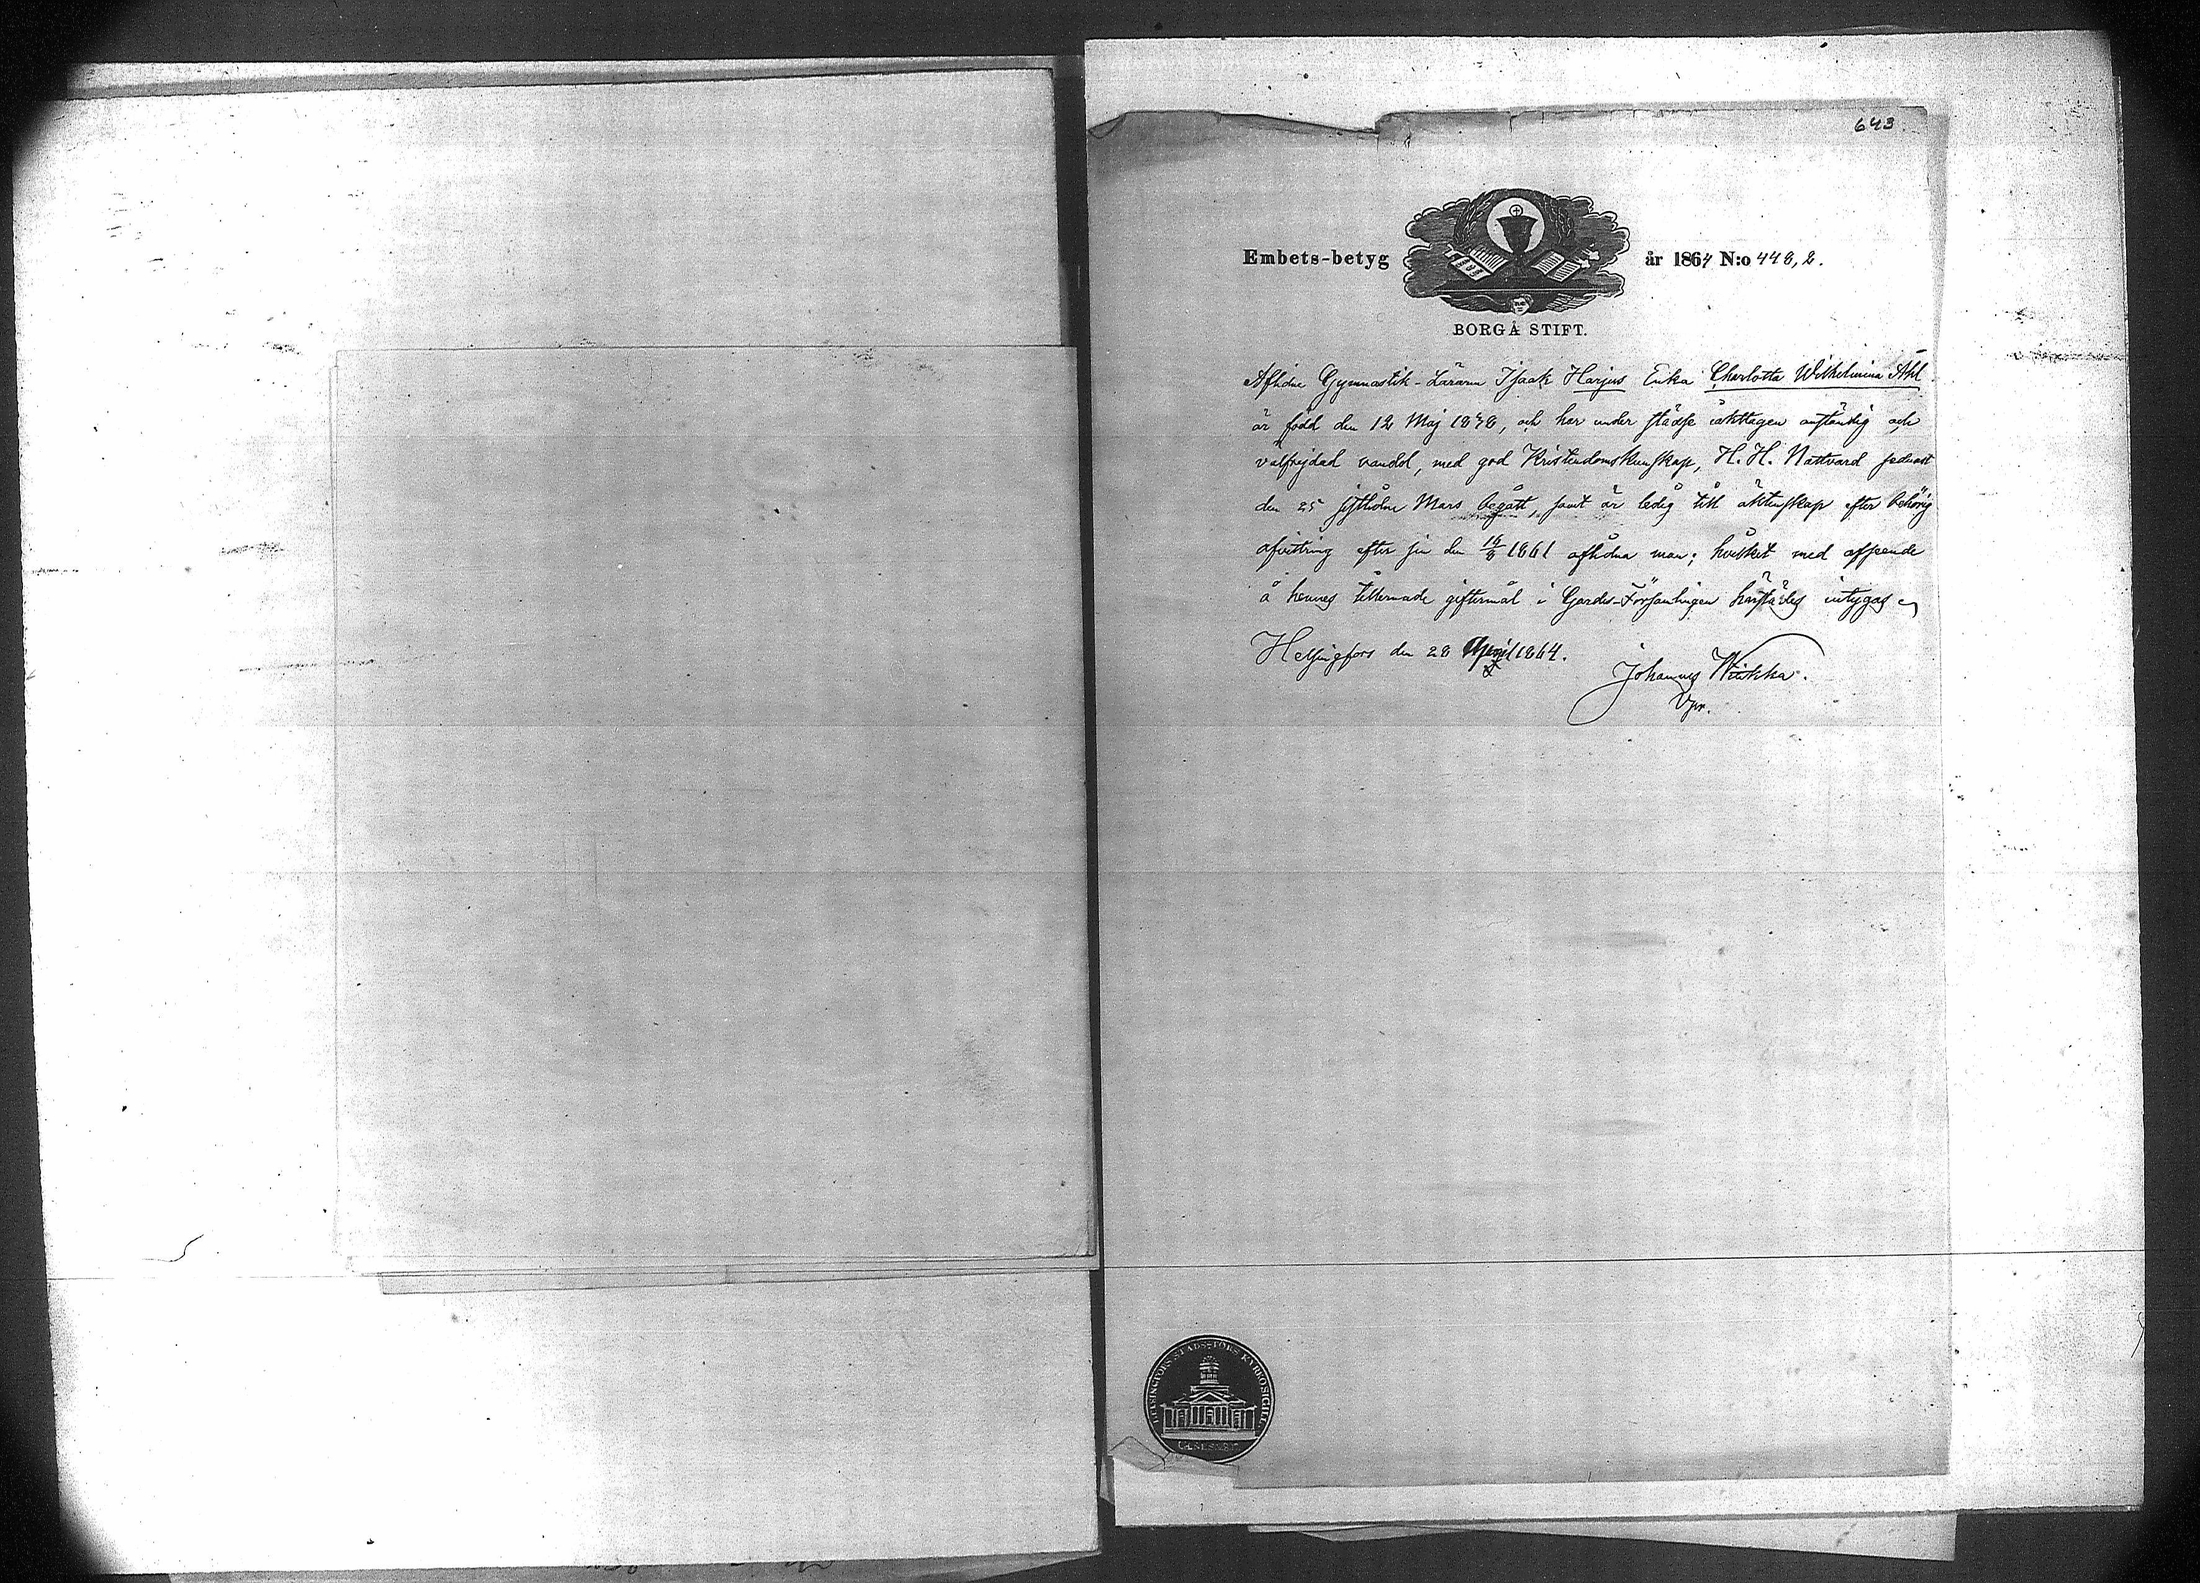 643
Embets-betyg år 1864 N:o 448,2.
BORGÅ STIFT.
Aflidne Gymnastik-Läraren Isaak Harjus Enka Charlotta Wilhelmina Ahl
är född den 12 Maj, och har under städse iakttagen anständig och
välfrejdad vandel, med god Kristendomskunskap, H. H. Nattvard sednast
den 25 sistlidne Mars begått, samt är ledig till äktenskap efter behörig
afvittring efter sin den 1861 aflidna man; hvilket med afseende
å hennes tillernade giftermål i Gardes-Församlingen härstädes intygas
Helsingfors den 28 April 1864.
Johannes
Vpr.
HELSINGFORS STADS-FÖRS KYRKO SIGILL